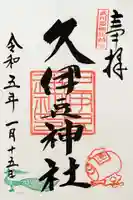 奉拝
久伊豆神社
令和五年一月十五日